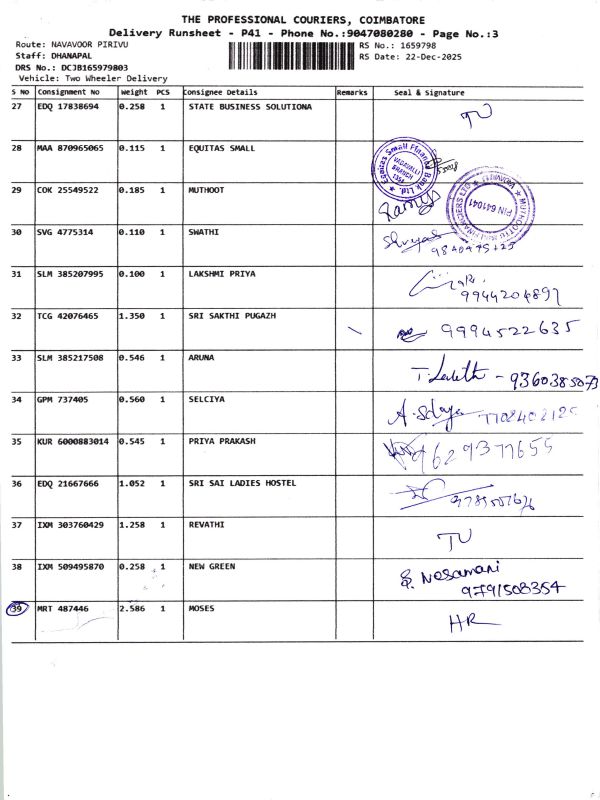 THE PROFESSIONAL COURIERS, COIMBATORE
Delivery Runsheet - P41 - Phone No.:9047080280 - Page No.:3
Route: NAVAVOOR PIRIVU
RS No.: 1659798
Staff: DHANAPAL
RS Date: 22-Dec-2025
DRS No.: DCJB165979803
Vehicle: Two Wheeler Delivery
S No Consignment No Weight PCS Consignee Details Remarks Seal & Signature
27 EDQ 17838694 0.258 1 STATE BUSINESS SOLUTIONA TU
28 MAA 870965065 0.115 1 EQUITAS SMALL
Equitas Small Finance Bank Ltd.
VADAVALLI
BRANCH
29 COK 25549522 0.185 1 MUTHOOT
PIN 641041
30 SVG 4775314 0.110 1 SWATHI
31 SLM 385207995 0.100 1 LAKSHMI PRIYA
9944204897
32 TCG 42076465 1.350 1 SRI SAKTHI PUGAZH 9994522635
33 SLM 385217508 0.546 1 ARUNA
9360385073
34 GPM 737405 0.560 1 SELCIYA
35 KUR 6000883014 0.545 1 PRIYA PRAKASH 9629377655
36 EDQ 21667666 1.052 1 SRI SAI LADIES HOSTEL
37 IXM 303760429 1.258 1 REVATHI TU
38 IXM 509495870 0.258 1 NEW GREEN
9791508354
39 MRT 487446 2.586 1 MOSES HR